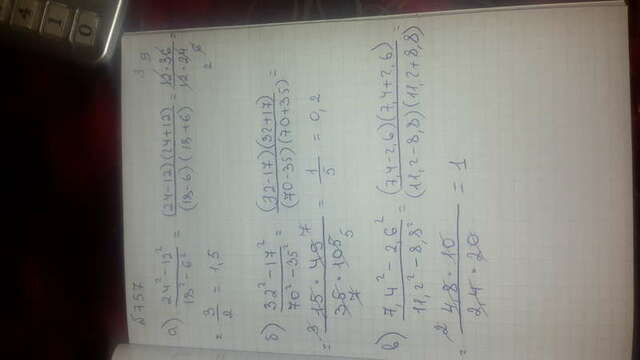 №757
а) (24² - 12²)/(18² - 6²) = ((24-12)(24+12))/((18-6)(18+6)) = (12·36)/(12·24) =
= 3/2 = 1,5
б) (32² - 17²)/(70² - 35²) = ((32-17)(32+17))/((70-35)(70+35)) =
= (15·49)/(35·105) = 1/5 = 0,2
в) (7,4² - 2,6²)/(11,2² - 8,8²) = ((7,4-2,6)(7,4+2,6))/((11,2-8,8)(11,2+8,8)) =
= (4,8·10)/(2,4·20) = 1
4 1 0